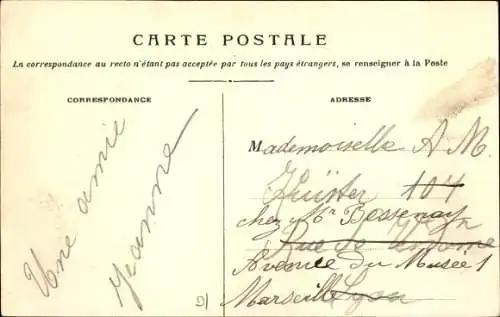 CARTE POSTALE
La correspondance au recto n'étant pas acceptée par tous les pays étrangers, se renseigner à la Poste
CORRESPONDANCE
ADRESSE
Une amie
Jeanne
Mademoiselle A M.
107
chez Mr Bessenay
Rue de
Avenue du Musée 1
Marseille Lyon